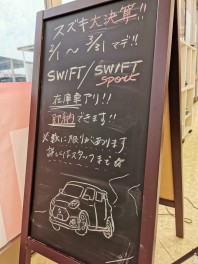 スズキ大決算!!
2/1 〜 3/31 マデ!!
SWIFT/SWIFT
sport
在庫車アリ!!
即納できます!!
※数に限りがあります
詳しくはスタッフまで☆